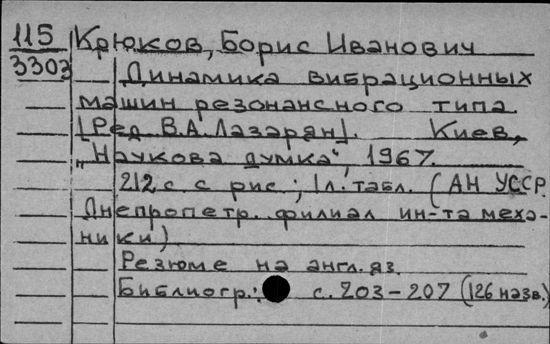 115 Крюков, Борис Иванович
3303 Динамика вибрационных
машин резонансного типа.
[Ред. В.А. Лазарян]. Киев,
„Наукова думка", 1967.
212 с. с рис.; 1 л. табл. (АН УССР.
Днепропетр. филиал ин-та меха-
ники)
Резюме на англ. яз.
Библиогр.: с. 203-207 (126 назв.)